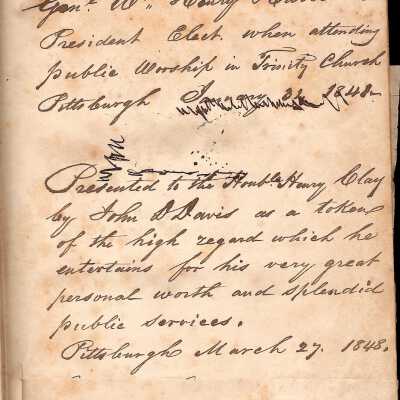 Genl. Wm. Henry
President Elect, when attending
public Worship in Trinity Church
Pittsburgh 31 1841
Presented to the Honble Henry Clay
by John D Davis as a token
of the high regard which he
entertains for his very great
personal worth and splendid
public services.
Pittsburgh March 27. 1848.